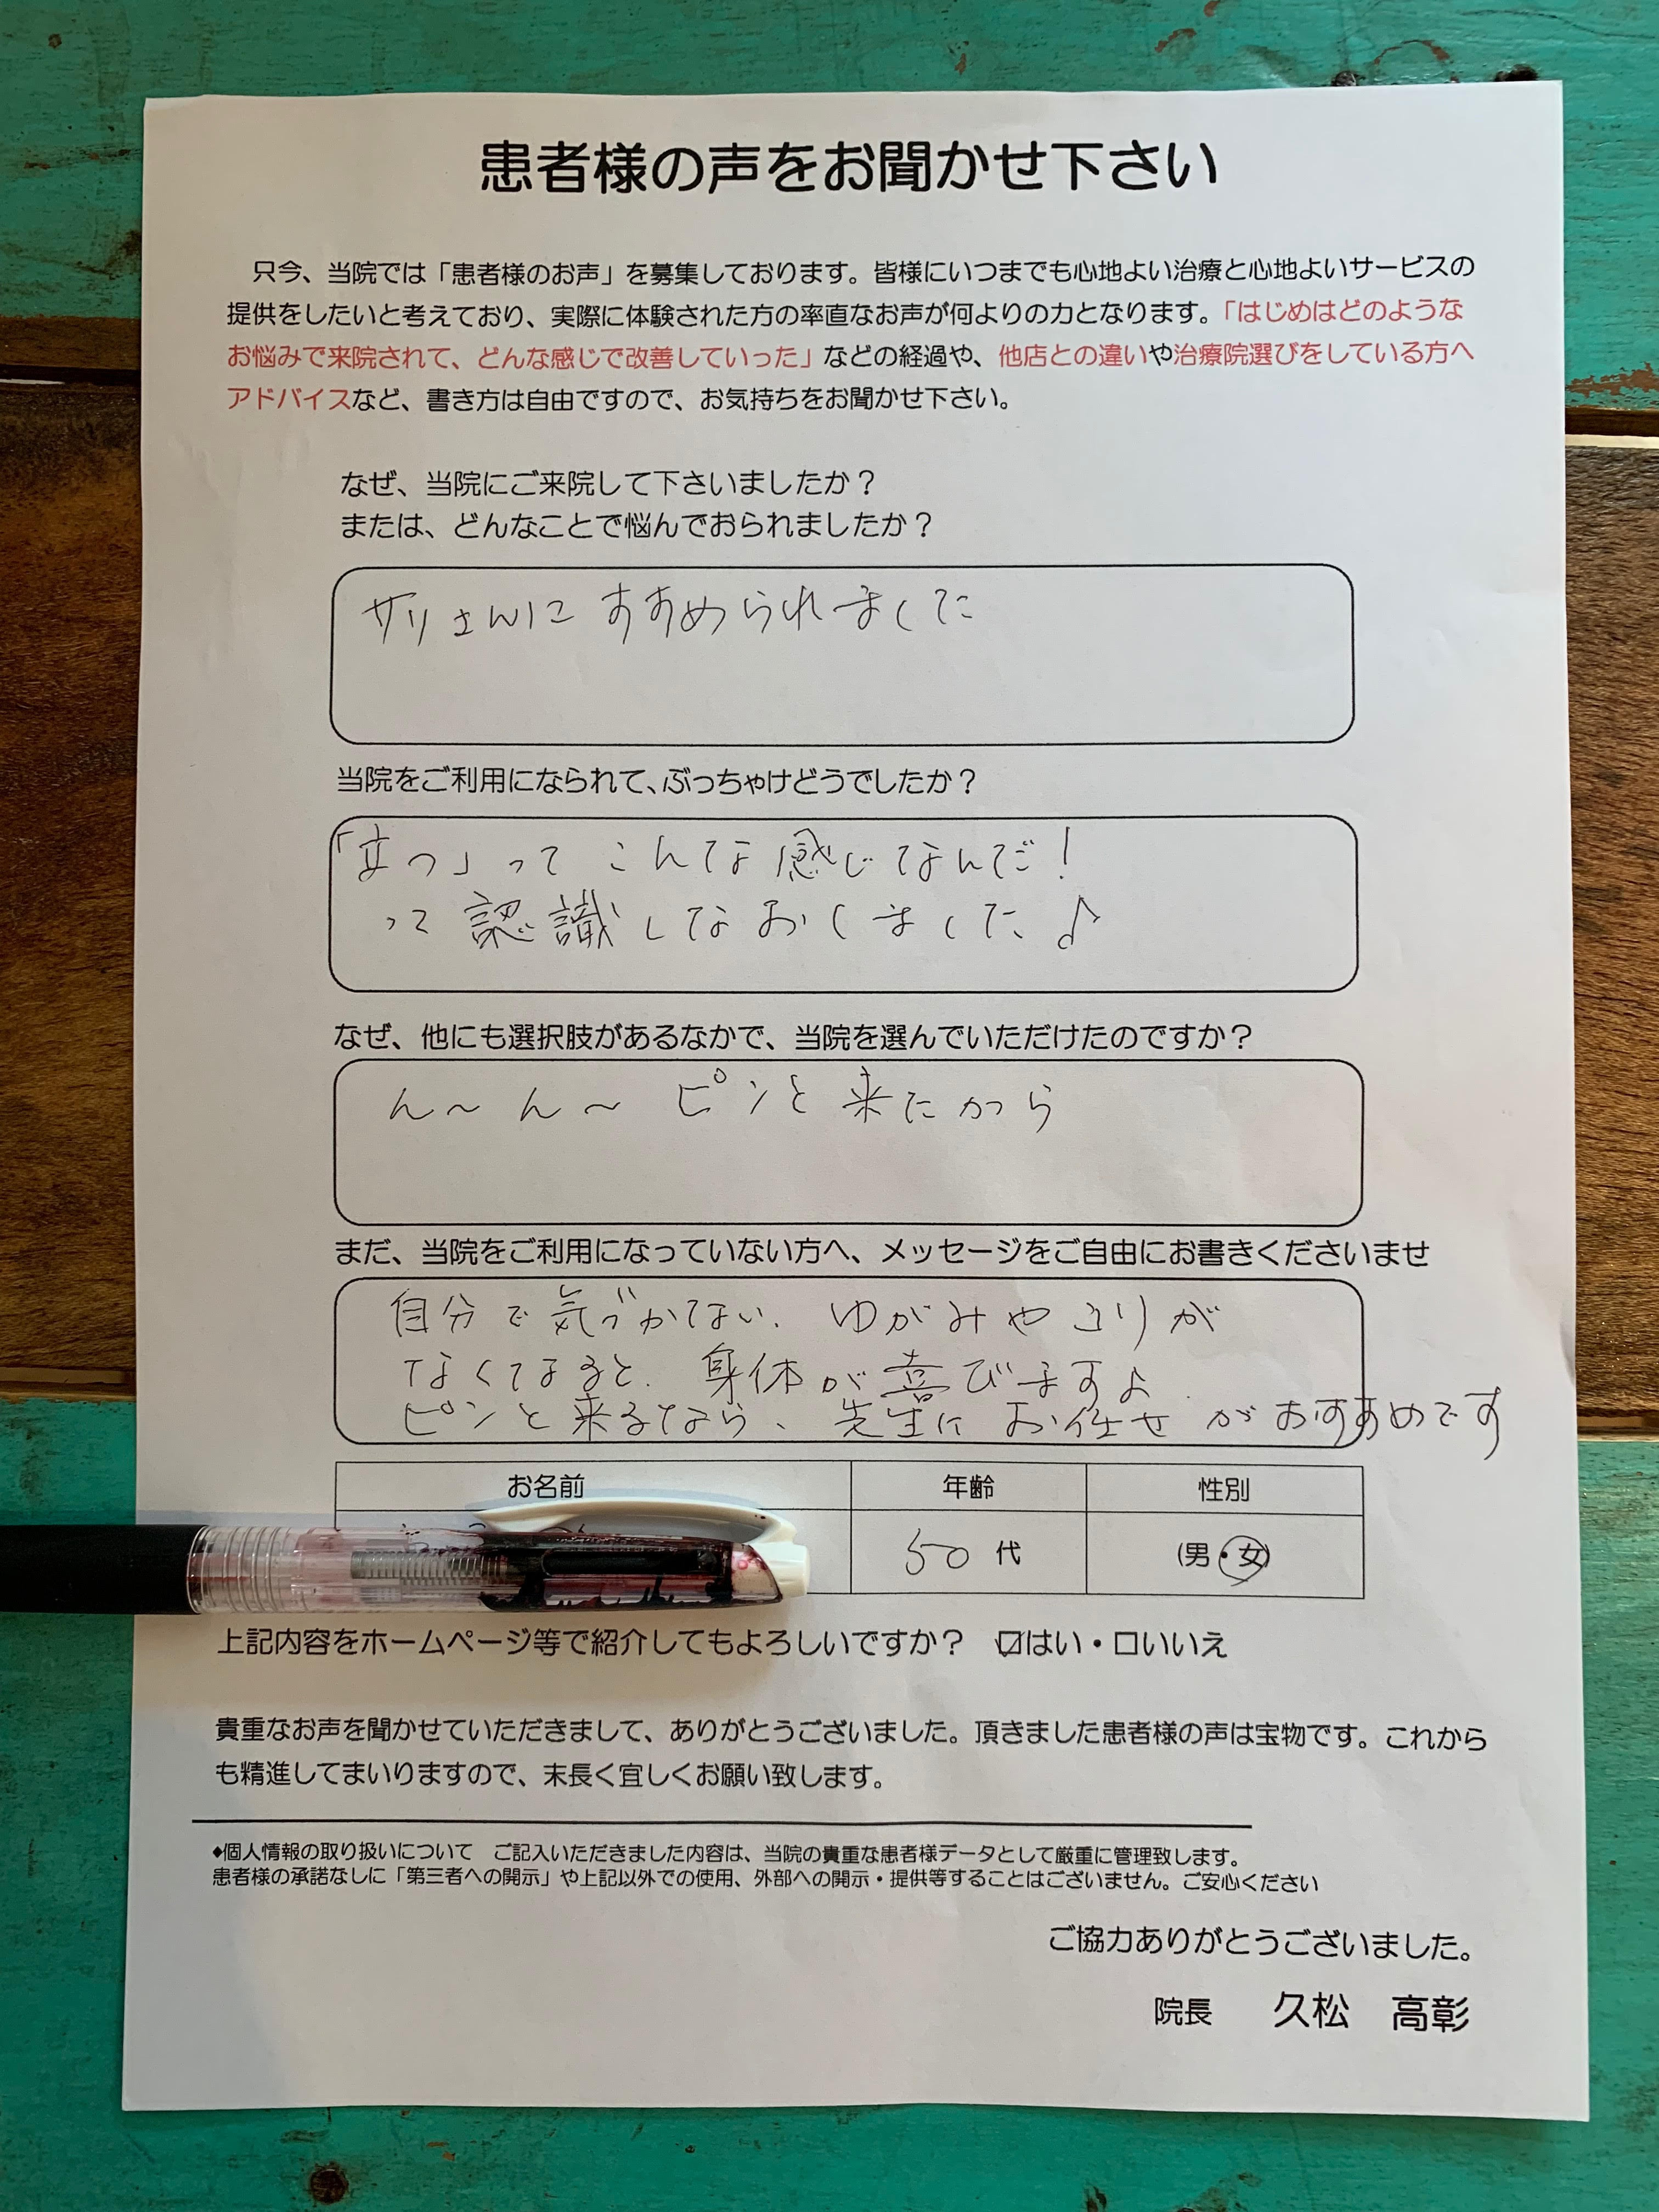 患者様の声をお聞かせ下さい
只今、当院では「患者様のお声」を募集しております。皆様にいつまでも心地よい治療と心地よいサービスの
提供をしたいと考えており、実際に体験された方の率直なお声が何よりの力となります。「はじめはどのような
お悩みで来院されて、どんな感じで改善していった」などの経過や、他店との違いや治療院選びをしている方へ
アドバイスなど、書き方は自由ですので、お気持ちをお聞かせ下さい。
なぜ、当院にご来院して下さいましたか？
または、どんなことで悩んでおられましたか？
サリさんにすすめられました
当院をご利用になられて、ぶっちゃけどうでしたか？
「立つ」ってこんな感じなんだ！
って認識しなおしました♪
なぜ、他にも選択肢があるなかで、当院を選んでいただけたのですか？
ん〜ん〜ピンと来たから
まだ、当院をご利用になっていない方へ、メッセージをご自由にお書きくださいませ
自分で気づかない、ゆがみやコリが
なくなると、身体が喜びますよ
ピンと来るなら、先生にお任せがおすすめです
お名前 年齢 性別
50代 (男・女)
上記内容をホームページ等で紹介してもよろしいですか？ ☑はい・☐いいえ
貴重なお声を聞かせていただきまして、ありがとうございました。頂きました患者様の声は宝物です。これから
も精進してまいりますので、末長く宜しくお願い致します。
◆個人情報の取り扱いについて ご記入いただきました内容は、当院の貴重な患者様データとして厳重に管理致します。
患者様の承諾なしに「第三者への開示」や上記以外での使用、外部への開示・提供等することはございません。ご安心ください
ご協力ありがとうございました。
院長 久松 高彰